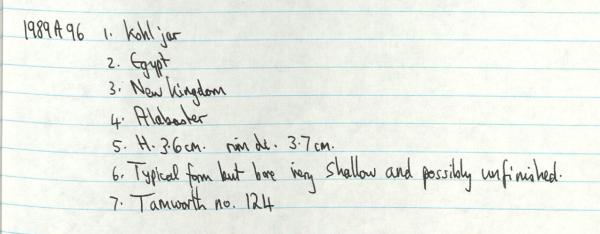 1989A96 1. Kohl jar
2. Egypt
3. New Kingdom
4. Alabaster
5. H. 3.6cm. rim di. 3.7cm.
6. Typical form but bore very shallow and possibly unfinished.
7. Tamworth no. 124